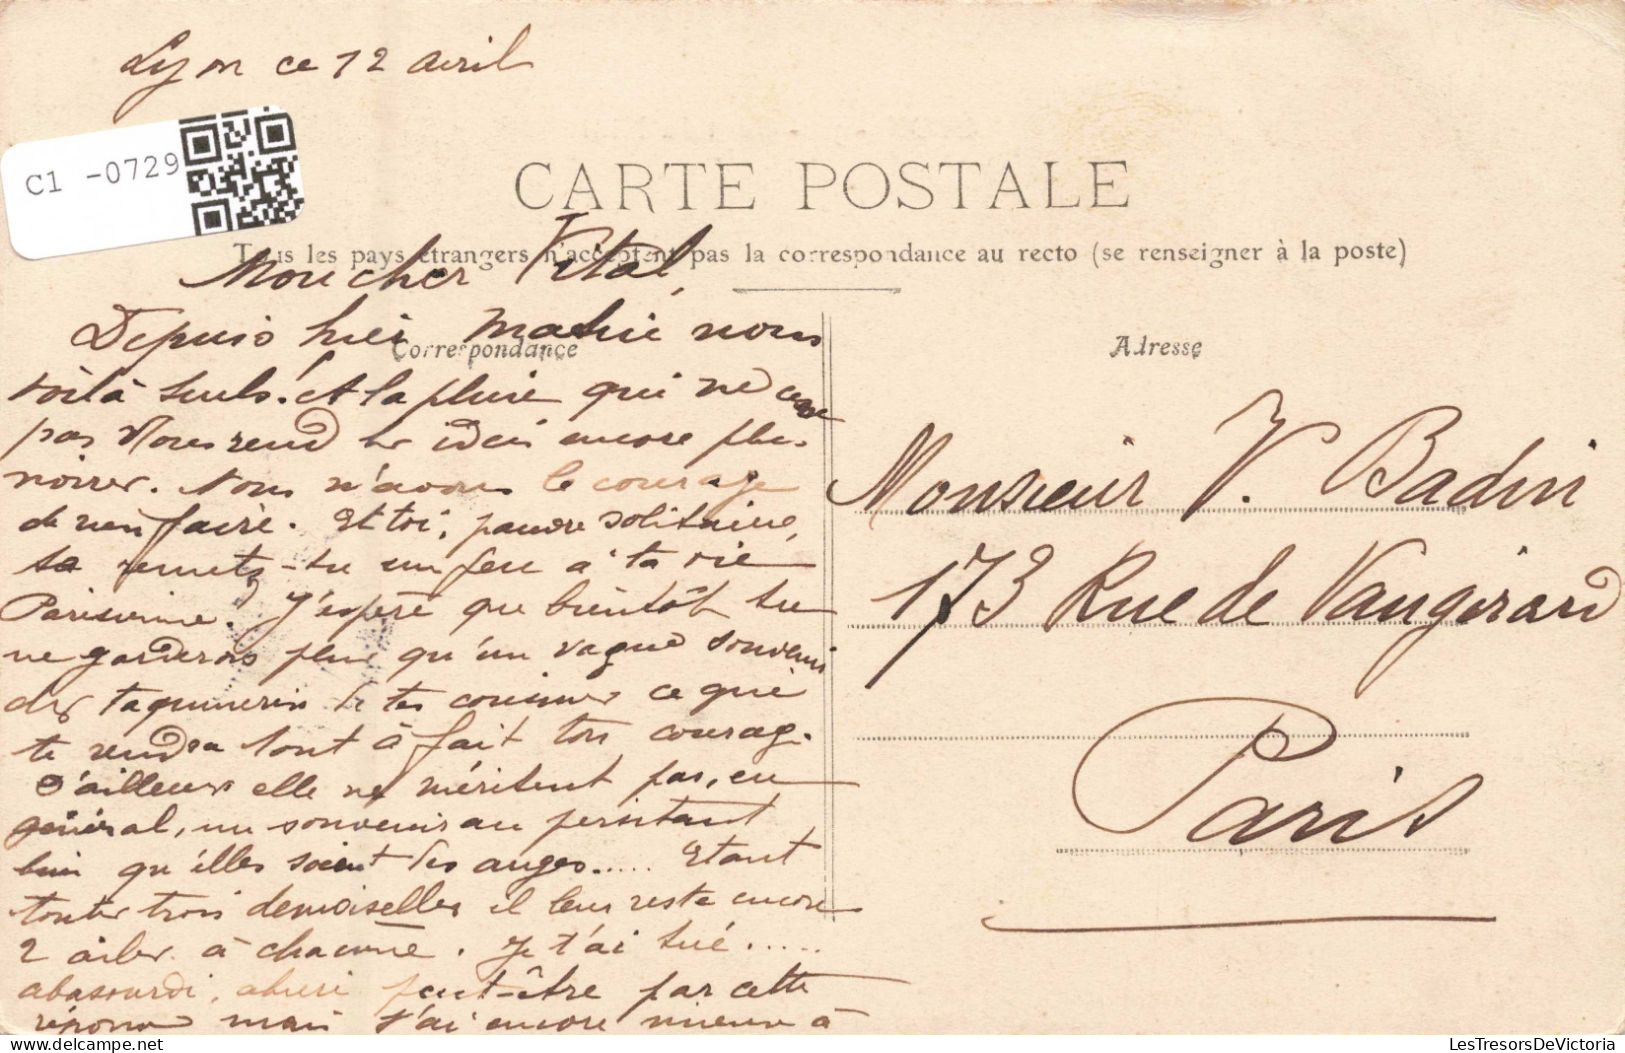 Lyon ce 12 avril
C1 -0729
CARTE POSTALE
Tous les pays étrangers n'acceptent pas la correspondance au recto (se renseigner à la poste)
Mon cher Vital,
Depuis hier matin nous
Correspondance
Adresse
voilà seuls! et la pluie qui ne cesse
pas nous rend les idées encore plus
noires. Nous n'avons le courage
de rien faire. Et toi, pauvre solitaire,
te remets-tu un peu à ta vie
Parisienne. J'espère que bientôt tu
ne garderas plus qu'un vague souvenir
des taquineries de tes cousines ce qui
te rendra tout à fait ton courage.
D'ailleurs elle ne méritent pas, en
général, un souvenir aussi persistant
bien qu'elles soient des anges..... Etant
toutes trois demoiselles il leur reste encore
2 ailes à chacune. Je t'ai tué.....
abasourdi, ahuri peut-être par cette
réponse mais j'ai encore mieux à
Monsieur V. Badin
173 Rue de Vaugirard
Paris
LesTresorsDeVictoria